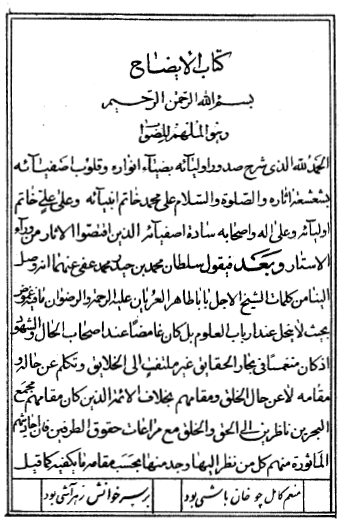 كتاب الايضاح
بسم الله الرحمن الرحيم
وهو الملهم للصواب
الحمد لله الذى شرح صدور اوليائه بضياء انواره وقلوب اصفيائه
بشعشعة اثاره والصلوة والسلام على محمد خاتم انبيائه وعلى على خاتم
اوليائه وعلى اله واصحابه سادة اصفيائه الذين اقتفوا الاثار من وراء
الاستار وبعد فيقول سلطان محمد بن حيدر محمد عفى عنهما انه وصل
الينا من كلمات الشيخ الاجل بابا طاهر العريان عليه الرحمة والرضوان ما فيه غموض
بحيث لا ينحل عند ارباب العلوم بل كان غامضا عند اصحاب الحال والشهود
اذ كان منغمسا فى بحار الحقايق غير ملتفت الى الخلايق وتكلم عن حاله و
مقامه لا عن حال الخلق ومقامهم بخلاف الائمة الذين كان مقامهم مجمع
البحرين ناظرين الى الحق والخلق مع مراعات حقوق الطرفين فان احاديثهم
الماثورة منهم كل من نظر اليها وجد منها بحسب مقامه ما يكفيه كما قيل
منعم كامل چو خان باشى بود بر سر خوانش ز هر آشى بود